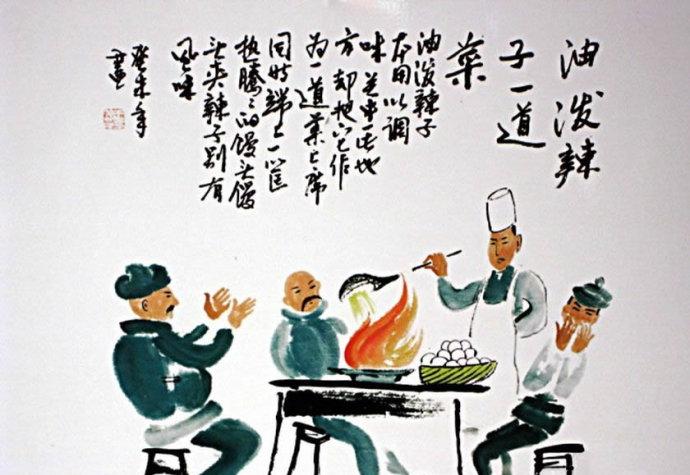 油泼辣
子一道
菜
油泼辣子
本用以调
味关中一些地
方却把它作
为一道菜上席
同时端上一筐
热腾々的馒头馒
头夹辣子别有
风味
癸未年